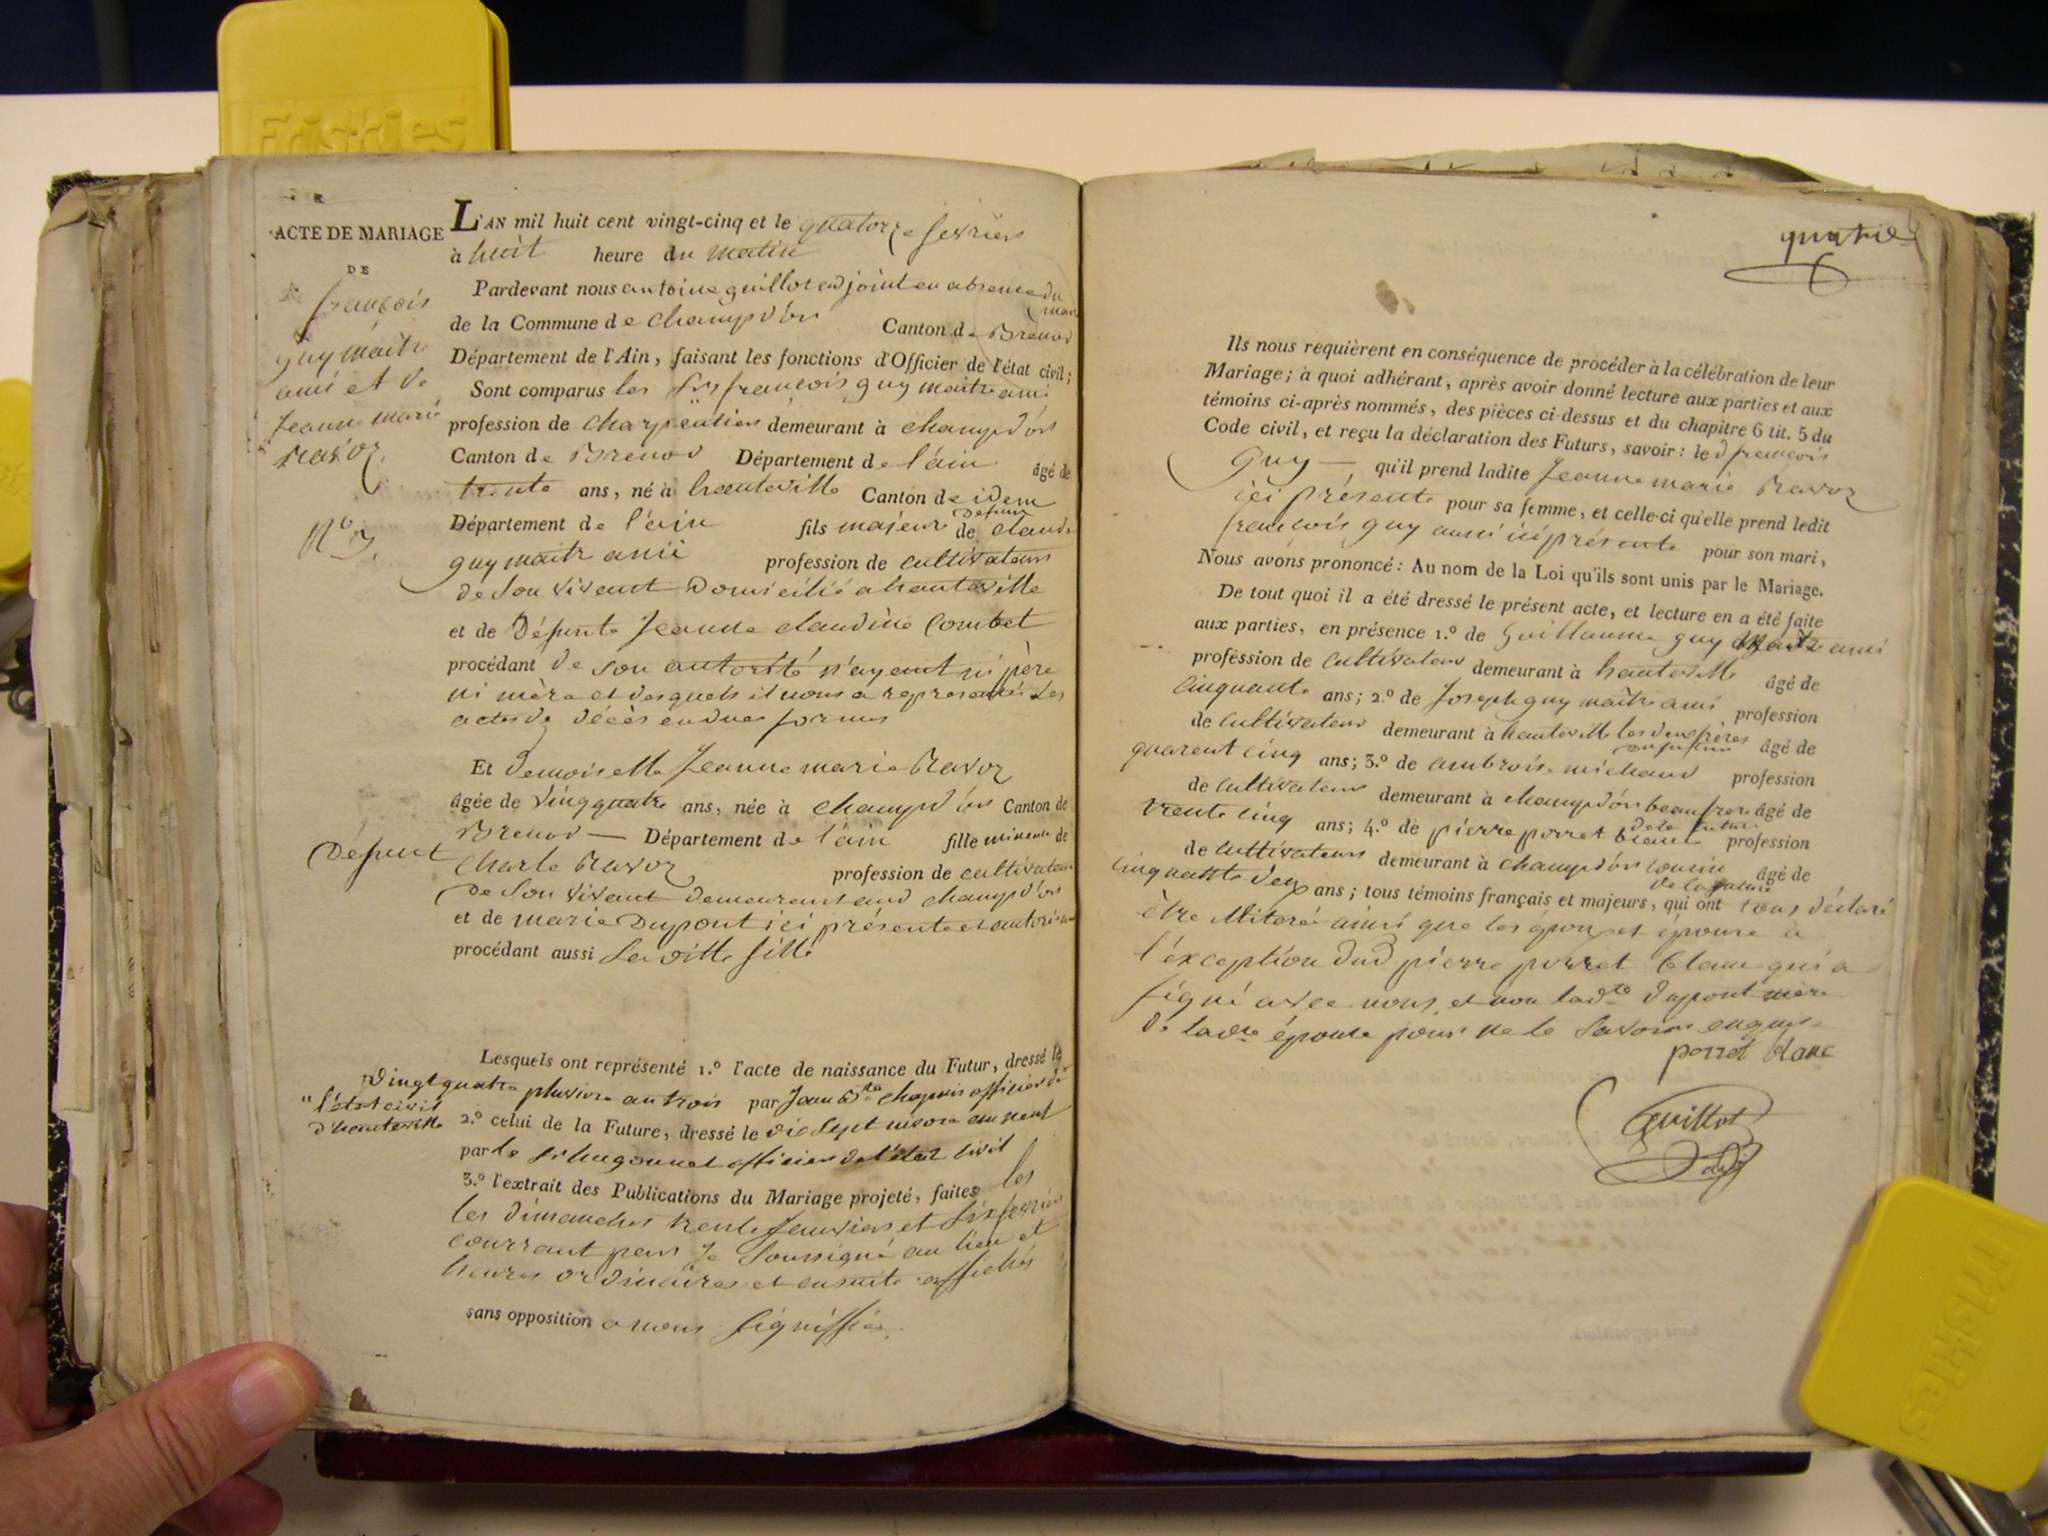 Friskies
ACTE DE MARIAGE
DE
françois
guy maitre
ami et de
Jeanne marie
Ravoz
N.o 3.
L'AN mil huit cent vingt-cinq et le quatorze fevrier
à huit heure du matin
Pardevant nous antoine guillot adjoint en absence du
maire
de la Commune de champdor Canton de Brenod
Département de l'Ain, faisant les fonctions d'Officier de l'état civil;
Sont comparus les Srs françois guy maitre ami
profession de charpentier demeurant à champdor
Canton de Brenod Département de l'ain âgé de
trente ans, né à hauteville Canton de idem
Département de l'ain fils majeur de defunt claude
guy maitr ami profession de cultivateur
de son vivant Domicilié a hauteville
et de Défunte Jeanne claudine Combet
procédant de son autorité n'ayant ni père
ni mère et desquels il nous a representé les
actes de décès en dues formes
Et demoiselle Jeanne marie Ravoz
âgée de vingquatre ans, née à champdor Canton de
Brenod Département de l'ain fille mineure de
Défunt Charle Ravoz profession de cultivateur
de son vivant demeurant aud champdor
et de marie Dupont ici présente et autorisant
procédant aussi sa ditte fille
Lesquels ont représenté 1.o l'acte de naissance du Futur, dressé le
vingt quatre pluviose an trois par Jean Bte chapuis officier de
l'état civil
d'hauteville
2.o celui de la Future, dressé le dix sept nivose an neuf
par le Sr hugonnet officier de l'état civil
3.o l'extrait des Publications du Mariage projeté, faites les
les dimanches trente Janvier et six fevrier
courrant par Je soussigné au lieu et
heures ordinaires et ensuite affichés
sans opposition a nous signiffiée.
quatre
Ils nous requièrent en conséquence de procéder à la célébration de leur
Mariage; à quoi adhérant, après avoir donné lecture aux parties et aux
témoins ci-après nommés, des pièces ci-dessus et du chapitre 6 tit. 5 du
Code civil, et reçu la déclaration des Futurs, savoir: le d françois
guy qu'il prend ladite Jeanne marie Ravoz
ici présente pour sa femme, et celle-ci qu'elle prend ledit
françois guy aussi ici présente pour son mari,
Nous avons prononcé: Au nom de la Loi qu'ils sont unis par le Mariage.
De tout quoi il a été dressé le présent acte, et lecture en a été faite
aux parties, en présence 1.o de Guillaume guy maitre ami
profession de cultivateur demeurant à hauteville âgé de
cinquante ans; 2.o de Joseph guy maitre ami profession
de cultivateur demeurant à hauteville les deux frères du futur âgé de
quarent cinq ans; 3.o de ambroise michaud profession
de cultivateur demeurant à champdor beaufrere de la future âgé de
trente cinq ans; 4.o de pierre porret blanc profession
de cultivateur demeurant à champdor cousin de la future âgé de
cinquante deux ans; tous témoins français et majeurs, qui ont tous déclaré
être illiteré ainsi que les époux et épouse à
l'exception dud pierre porret blanc qui a
signé avec nous, et non ladte dupont mère
de ladte épouse pour ne le savoir enquise
porret blanc
Guillot
adj
Friskies